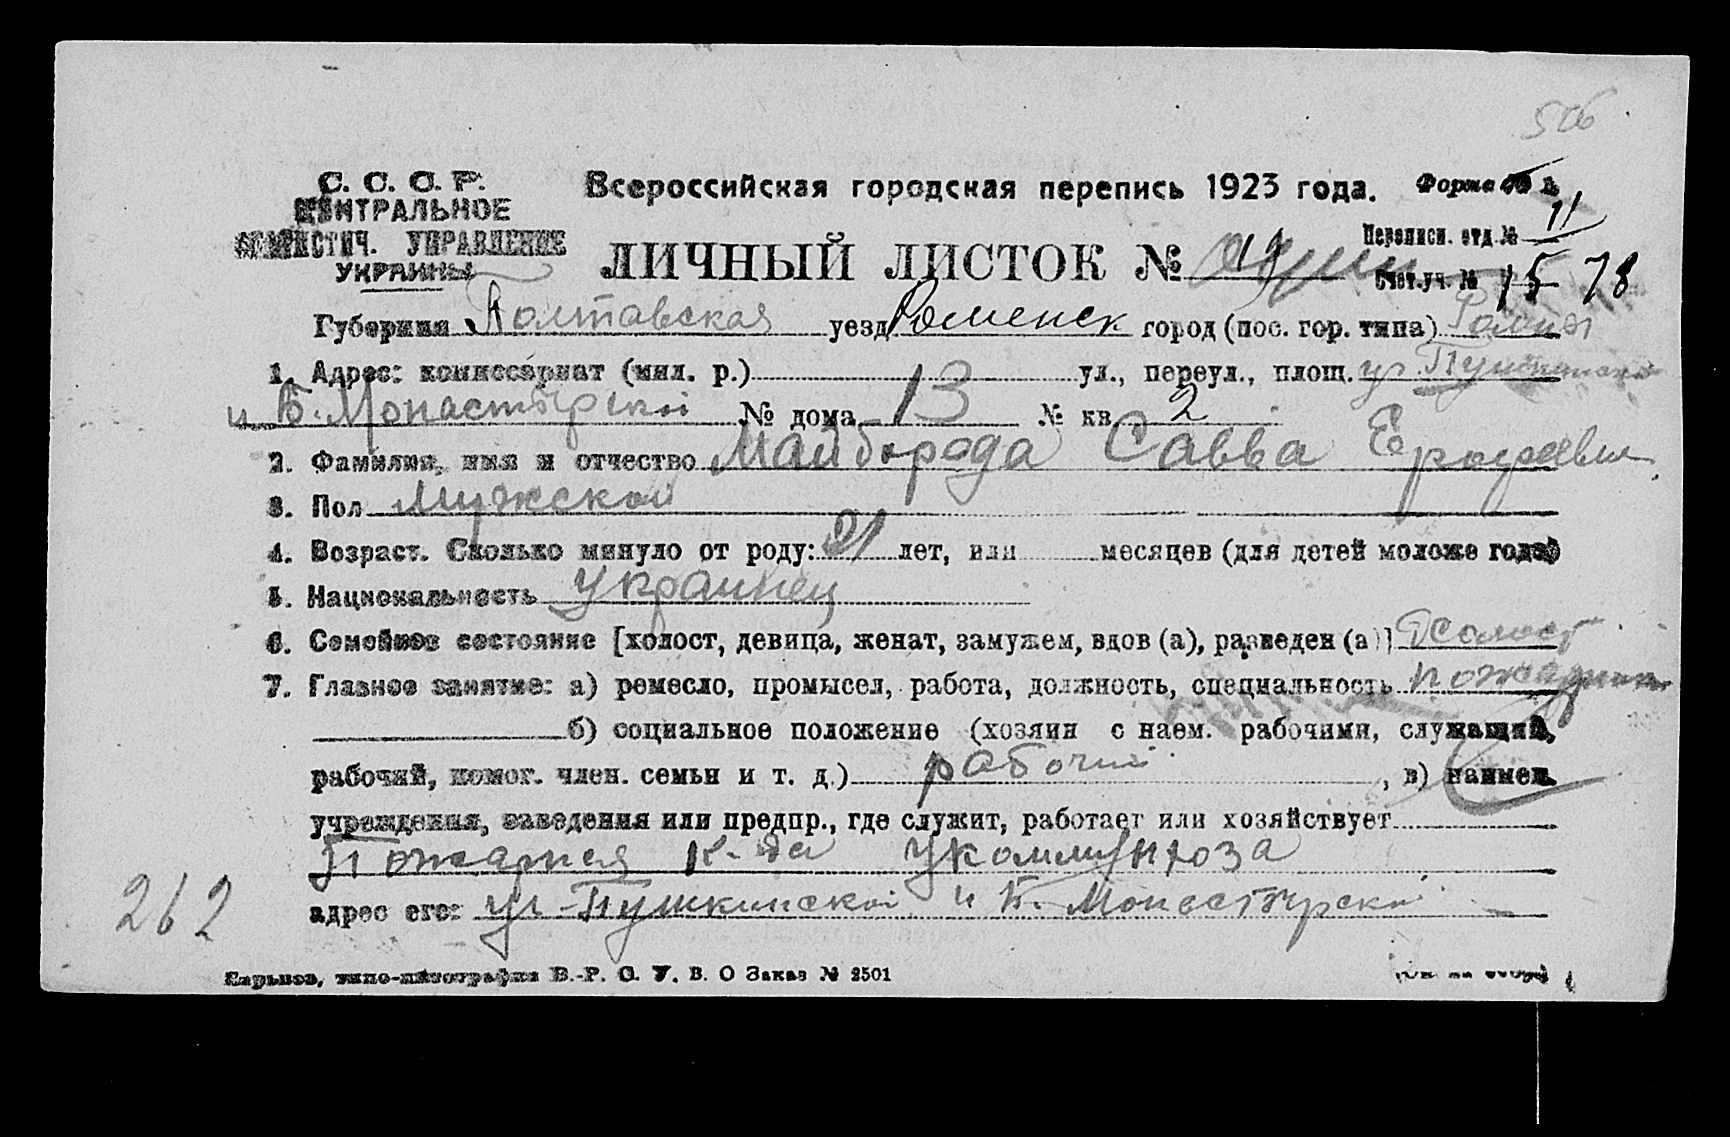 506
С. С. С. Р. Всероссийская городская перепись 1923 года. Форма
ЦЕНТРАЛЬНОЕ 11
СТАТИСТИЧ. УПРАВЛЕНИЕ ЛИЧНЫЙ ЛИСТОК № Переписн. отд. №
УКРАИНЫ Счет.уч. № 15 78
Губерния Полтавская уезд Роменск город (пос. гор. типа) Ромны
1. Адрес: комиссариат (мил. р.) ул., переул., площ. уг. Пушкинской
и Б. Монастырской № дома 13 № кв. 2
2. Фамилия, имя и отчество Майборода Савва
3. Пол Мужской
4. Возраст. Сколько минуло от роду: 21 лет, или месяцев (для детей моложе года)
5. Национальность Украинец
6. Семейное состояние [холост, девица, женат, замужем, вдов (а), разведен (а)] Холост
7. Главное занятие: а) ремесло, промысел, работа, должность, специальность пожарник
б) социальное положение (хозяин с наем. рабочими, служащий,
рабочий, помог. член. семьи и т. д.) рабочий, в) наимен.
учреждения, заведения или предпр., где служит, работает или хозяйствует
Пожарная к-да Укоммунхоза
адрес его: уг. Пушкинской и Б. Монастырской
262
Харьков, типо-литография В.-Р. С. У. В. О Заказ № 2501